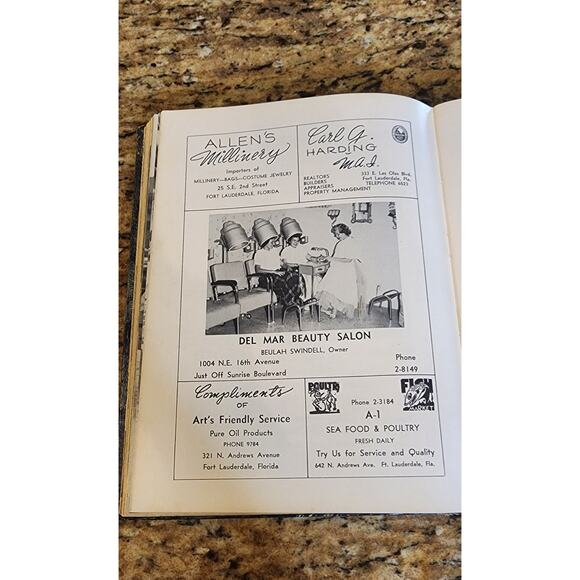 ALLEN'S
Millinery
Importers of
MILLINERY—BAGS—COSTUME JEWELRY
25 S.E. 2nd Street
FORT LAUDERDALE, FLORIDA
Carl G.
HARDING
M.A.I.
REALTORS
BUILDERS
APPRAISERS
PROPERTY MANAGEMENT
333 E. Las Olas Blvd.
Fort Lauderdale, Fla.
TELEPHONE 6523
DEL MAR BEAUTY SALON
BEULAH SWINDELL, Owner
1004 N.E. 16th Avenue
Just Off Sunrise Boulevard
Phone
2-8149
Compliments
OF
Art's Friendly Service
Pure Oil Products
PHONE 9784
321 N. Andrews Avenue
Fort Lauderdale, Florida
POULTRY
FISH
MARKET
Phone 2-3184
A-1
SEA FOOD & POULTRY
FRESH DAILY
Try Us for Service and Quality
642 N. Andrews Ave. Ft. Lauderdale, Fla.